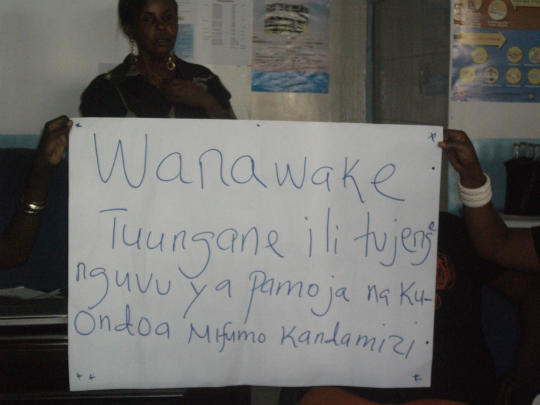 Wanawake
Tuungane ili tujenge
nguvu ya pamoja na Ku-
Ondoa Mfumo Kandamizi